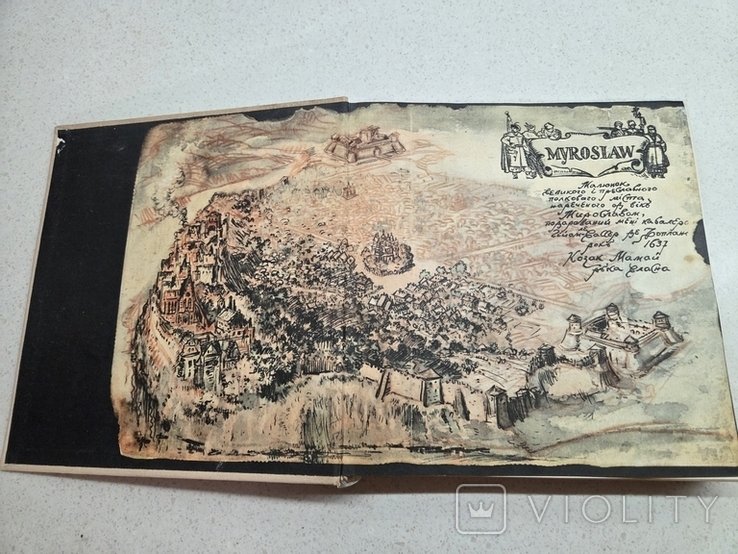 MYROSŁAW
Малюнок
великого і преславного
полкового міста
нареченого од віків
Мирославом,
подарований мені кавалєром
де Боплан
року 1637
Козак Мамай
рука власна
VIOLITY